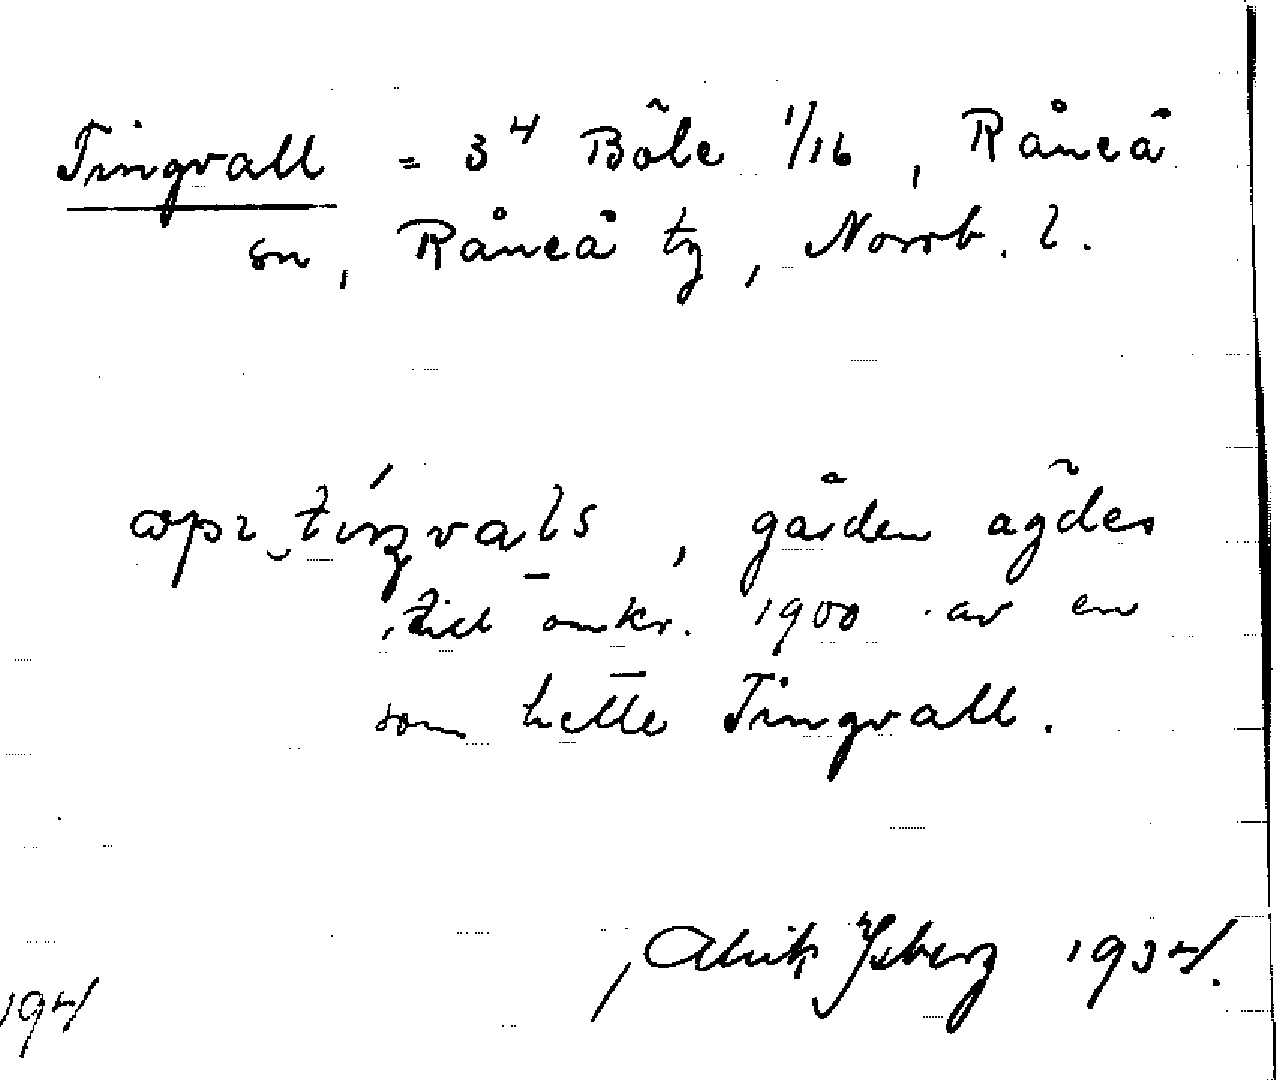 Tingvall = 3⁴ Böle 1/16, Råneå
sn, Råneå tg, Norrb. l.
gården ägdes
tid omkr. 1900 av en
som hette Tingvall.
Alrik Ysberg 1934.
194